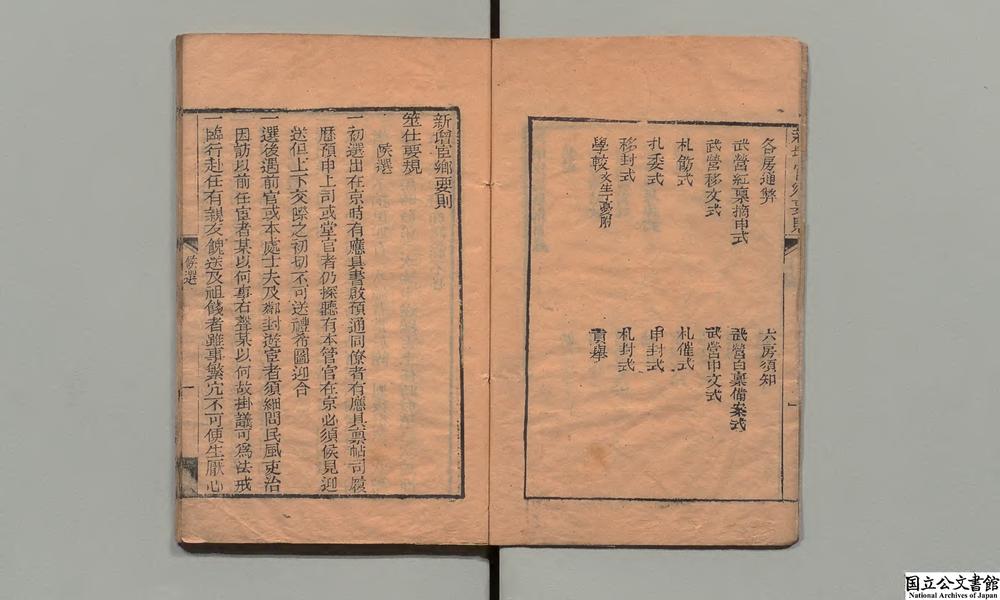 各房通弊
六房須知
武營紅稟摘由式
武營白稟備案式
武營移文式
武營申文式
札飭式
札催式
札委式
申封式
移封式
札封式
學校 文生丁憂附
貢舉
新增宦鄉要則
筮仕要規
候選
一初選出在京時有應具書啟預通同僚者有應具稟帖司履
歷預申上司或堂官者仍探聽有本管官在京必須侯見迎
送但上下交際之初切不可送禮希圖迎合
一選後遇前官或本處士夫及鄰封遊宦者須細問民風吏治
因訪以前任宦者某以何事右聲某以何故掛議可為法戒
一臨行赴任有親友餽送及祖餞者雖事繁冗不可便生厭心
候選
一
国立公文書館
National Archives of Japan